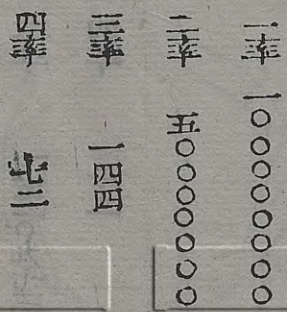 一率 一〇〇〇〇〇〇〇〇
二率 五〇〇〇〇〇〇〇
三率 一四四
四率 七二